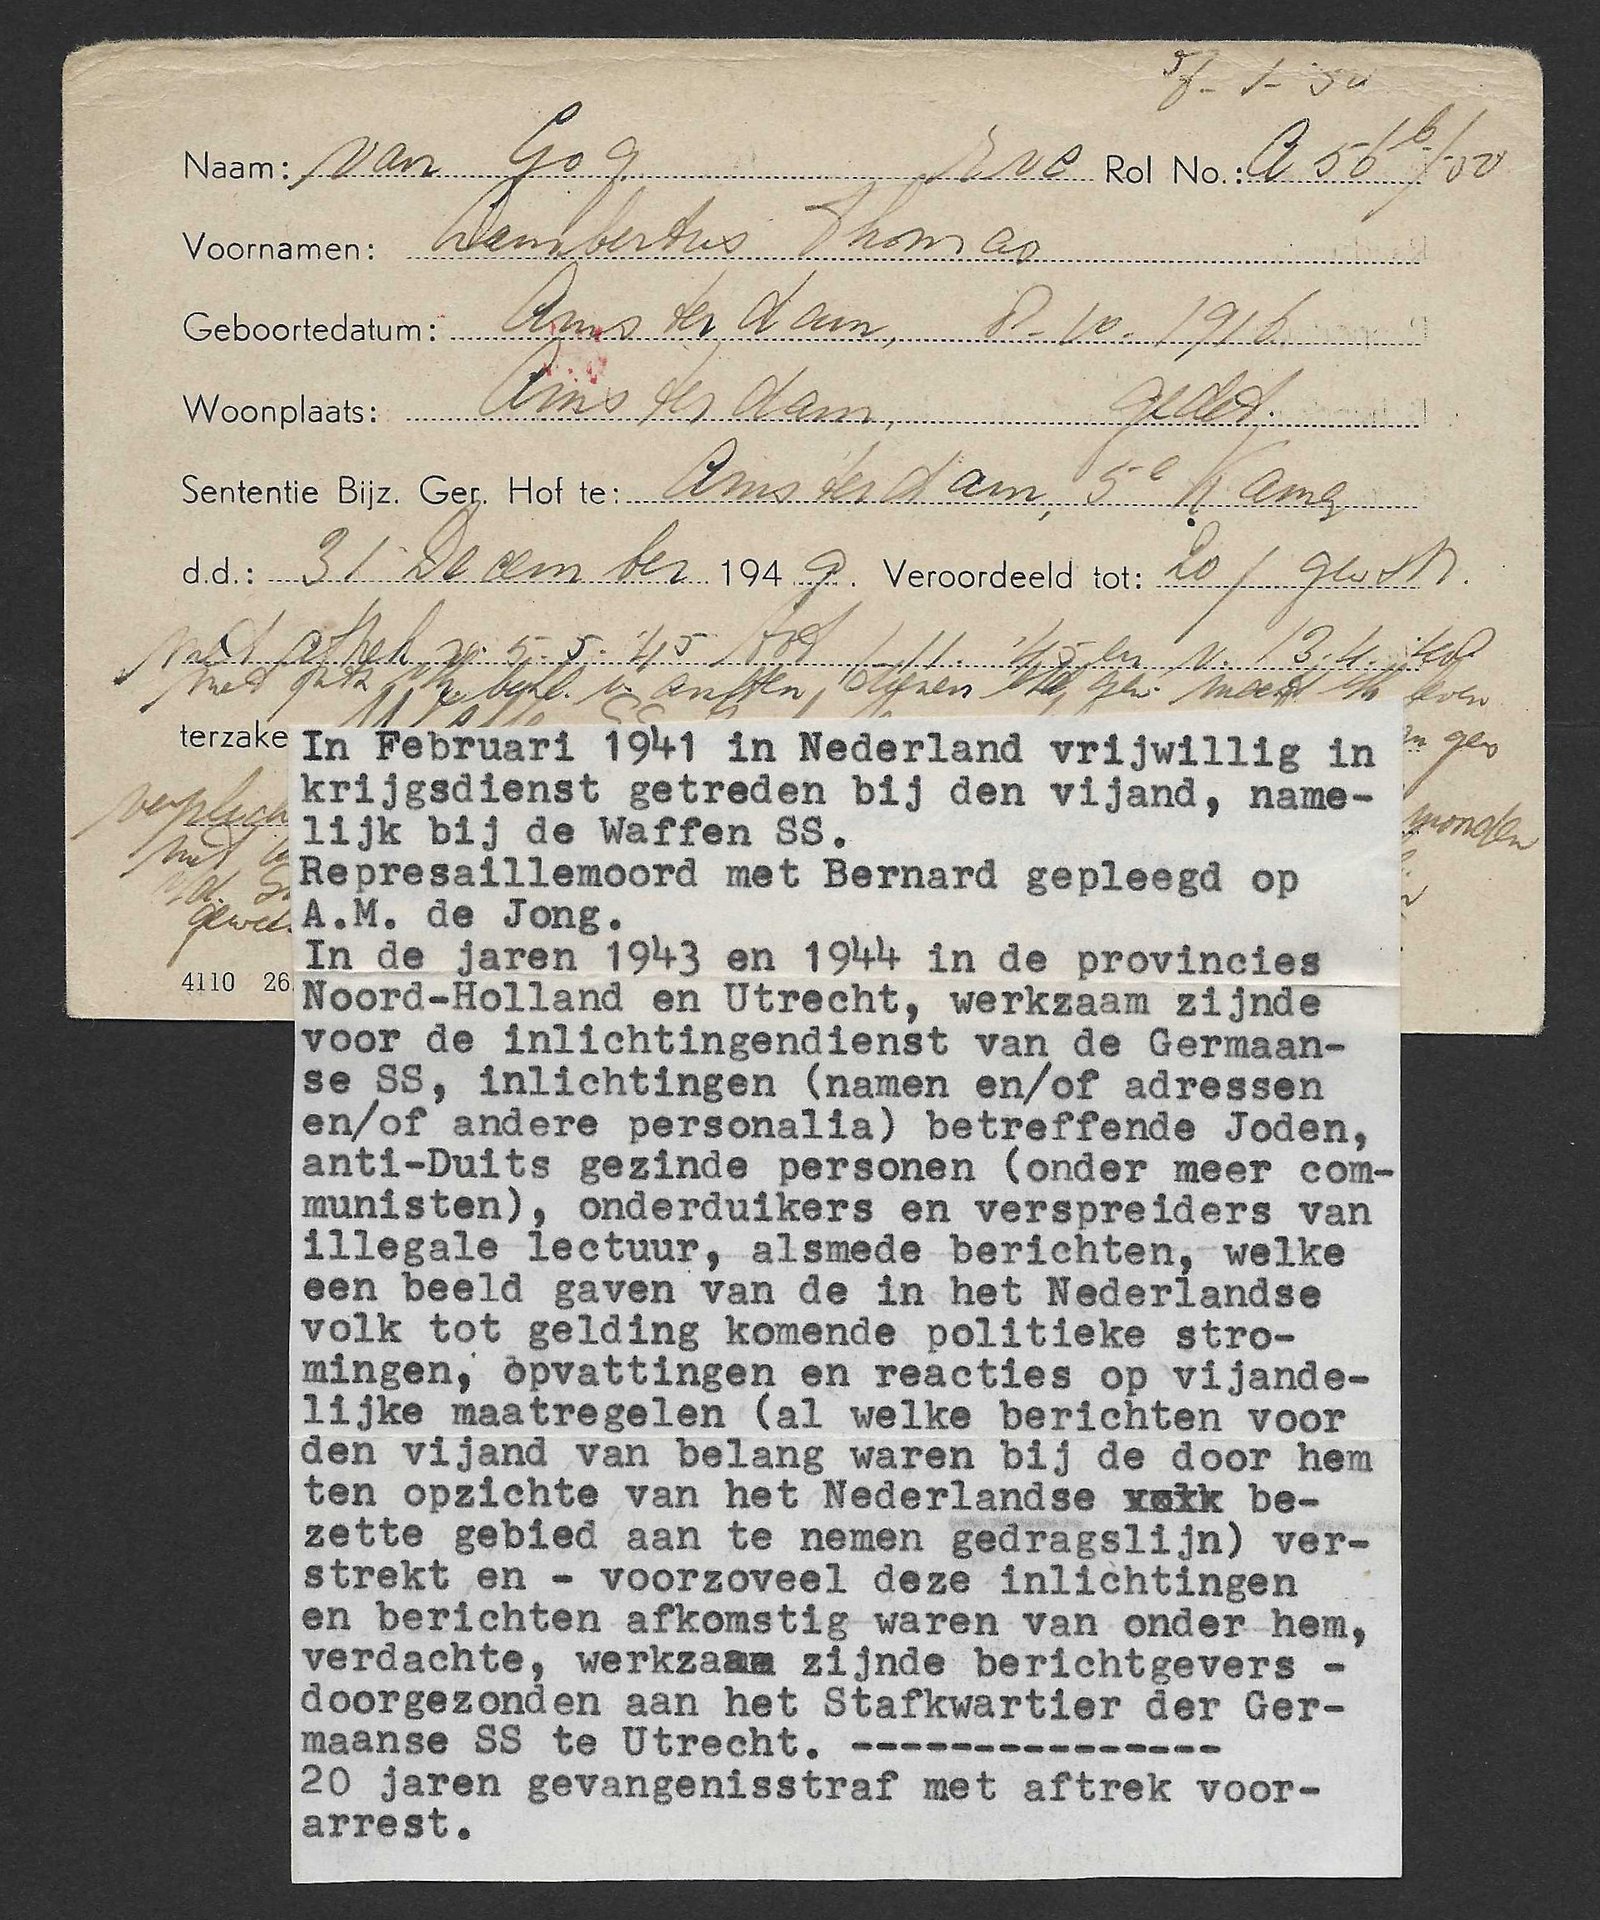 Naam: van Gog Rol No.: A 56
Voornamen: Lambertus Thomas
Geboortedatum: Amsterdam, 8-10-1916
Woonplaats: Amsterdam, gedet.
Sententie Bijz. Ger. Hof te: Amsterdam, 5e Kamer
d.d.: 31 December 1949. Veroordeeld tot: 20 j gev str.
met aftrek v. 5-5-'45 tot 1-11-'45 en v. 13.4.
met
terzake
In Februari 1941 in Nederland vrijwillig in
krijgsdienst getreden bij den vijand, name-
lijk bij de Waffen SS.
Represaillemoord met Bernard gepleegd op
A.M. de Jong.
In de jaren 1943 en 1944 in de provincies
Noord-Holland en Utrecht, werkzaam zijnde
voor de inlichtingendienst van de Germaan-
se SS, inlichtingen (namen en/of adressen
en/of andere personalia) betreffende Joden,
anti-Duits gezinde personen (onder meer com-
munisten), onderduikers en verspreiders van
illegale lectuur, alsmede berichten, welke
een beeld gaven van de in het Nederlandse
volk tot gelding komende politieke stro-
mingen, opvattingen en reacties op vijande-
lijke maatregelen (al welke berichten voor
den vijand van belang waren bij de door hem
ten opzichte van het Nederlandse be-
zette gebied aan te nemen gedragslijn) ver-
strekt en - voorzoveel deze inlichtingen
en berichten afkomstig waren van onder hem,
verdachte, werkzaam zijnde berichtgevers -
doorgezonden aan het Stafkwartier der Ger-
maanse SS te Utrecht. ---------------
20 jaren gevangenisstraf met aftrek voor-
arrest.
4110 26